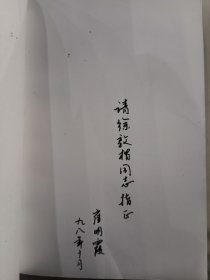 请徐敦楷同志指正
崔明霞
九八年十月